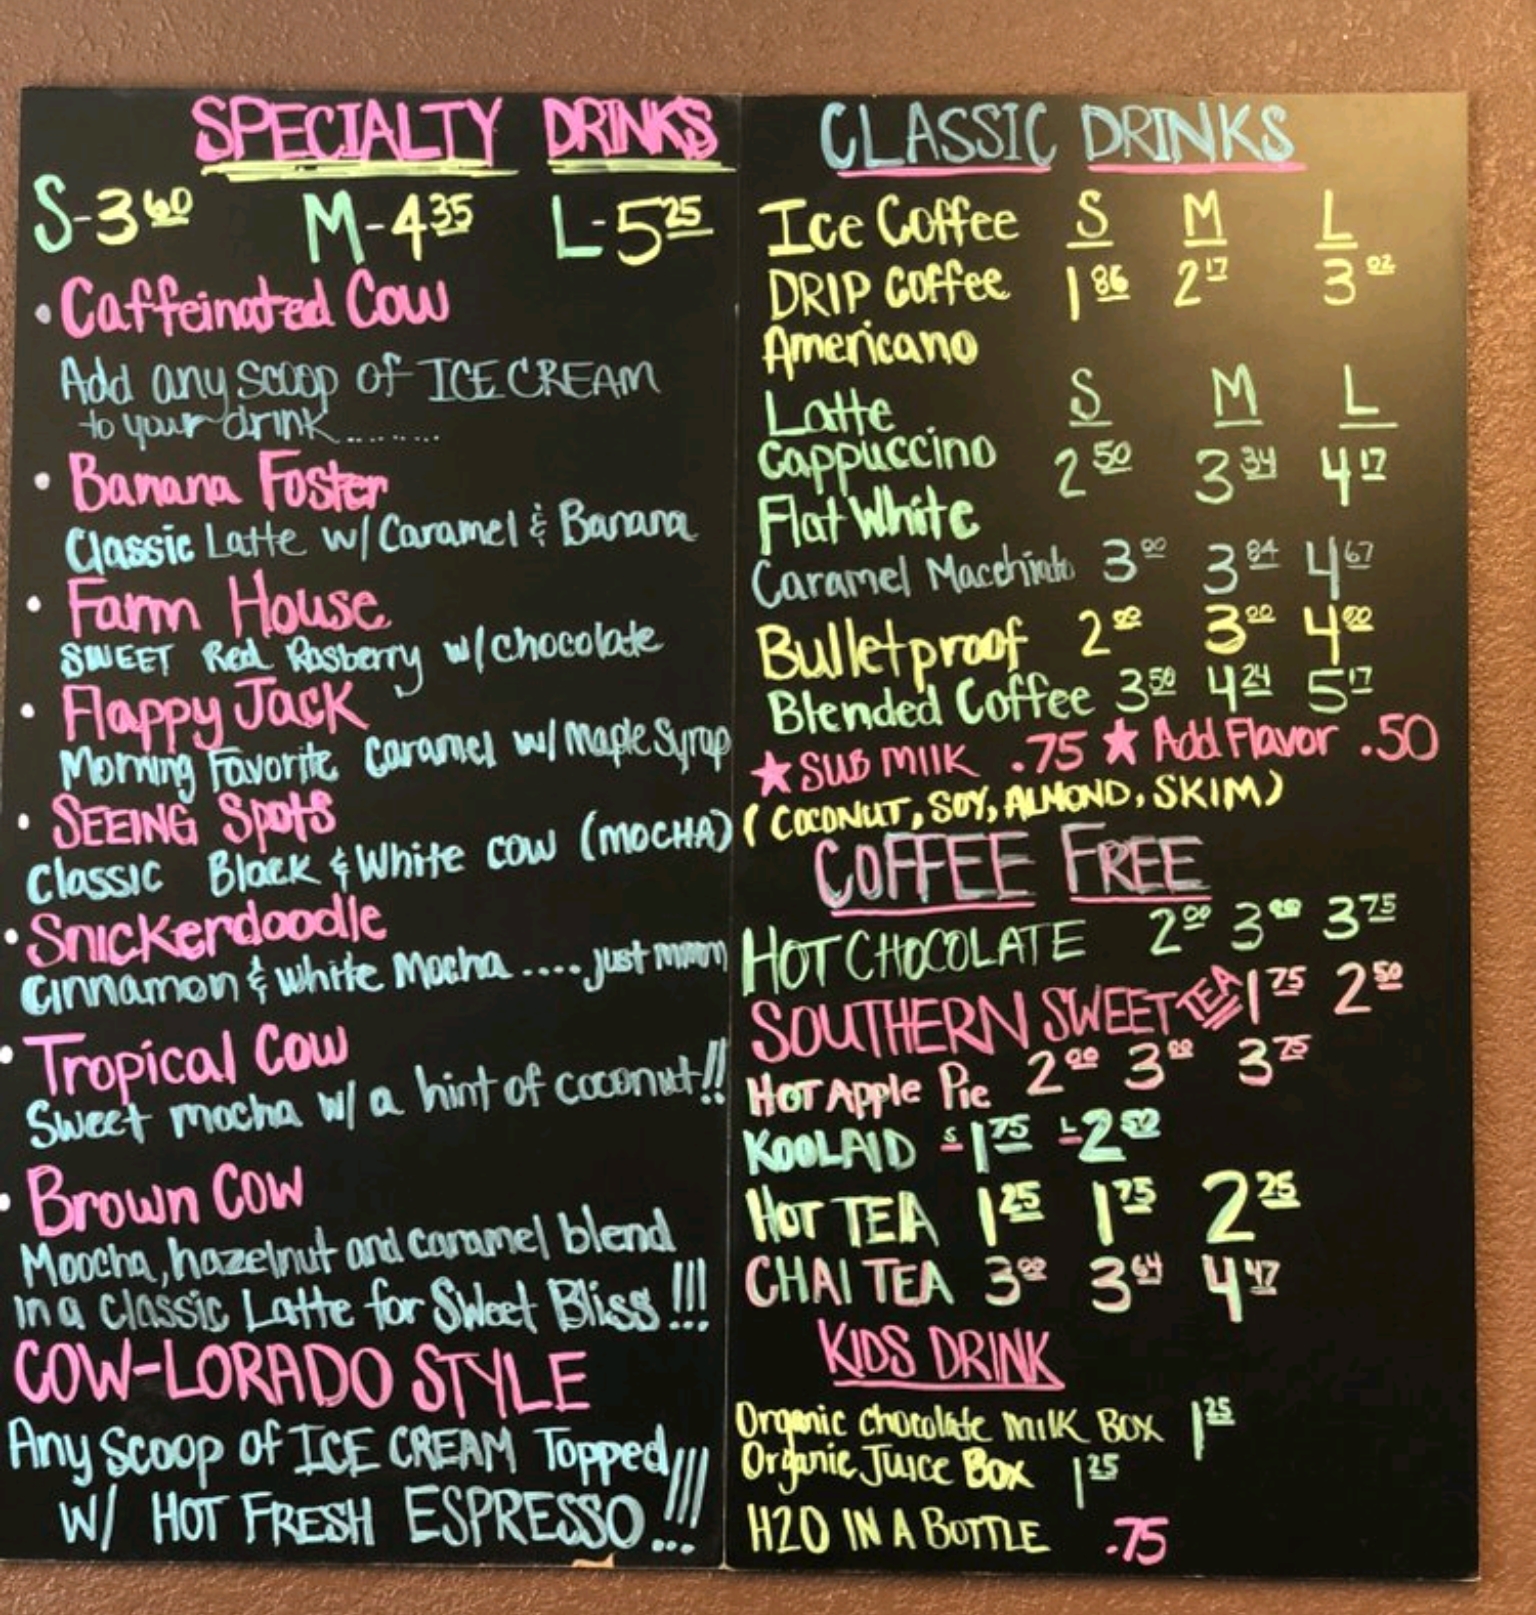 SPECIALTY DRINKS
S-3.60 M-4.35 L-5.25
• Caffeinated Cow
Add any scoop of ICE CREAM
to your drink.........
• Banana Foster
Classic Latte w/ Caramel & Banana
• Farm House
SWEET Red Rasberry w/ chocolate
• Flappy Jack
Morning Favorite Caramel w/ Maple Syrup
• SEEING Spots
Classic Black & White cow (MOCHA)
• Snickerdoodle
Cinnamon & white Mocha .... just mmm
• Tropical Cow
Sweet mocha w/ a hint of coconut!!
• Brown Cow
Moocha, hazelnut and caramel blend
in a Classic Latte for Sweet Bliss!!!
COW-LORADO STYLE
Any Scoop of ICE CREAM Topped
w/ HOT FRESH ESPRESSO...!!!
CLASSIC DRINKS
Ice Coffee S M L
DRIP Coffee 1.86 2.17 3.02
Americano
Latte S M L
Cappuccino 2.50 3.34 4.17
Flat White
Caramel Macchiato 3.00 3.84 4.67
Bulletproof 2.00 3.00 4.00
Blended Coffee 3.50 4.24 5.17
★ SUB MILK .75 ★ Add Flavor .50
(COCONUT, SOY, ALMOND, SKIM)
COFFEE FREE
HOT CHOCOLATE 2.00 3.00 3.75
SOUTHERN SWEET TEA 1.75 2.50
HOT Apple Pie 2.00 3.00 3.75
KOOLAID S-1.75 L-2.50
HOT TEA 1.25 1.75 2.25
CHAI TEA 3.00 3.64 4.47
KIDS DRINK
Organic chocolate MILK BOX 1.25
Organic Juice Box 1.25
H2O IN A BOTTLE .75